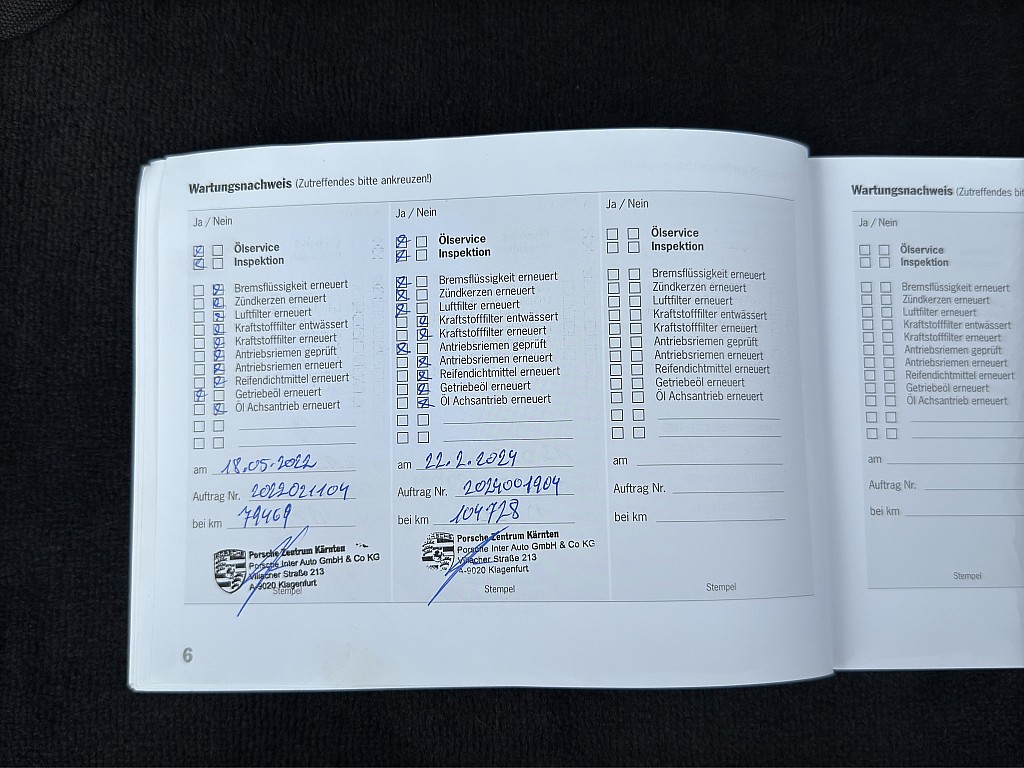 Wartungsnachweis (Zutreffendes bitte ankreuzen!)
Ja / Nein
Ölservice
Inspektion
Bremsflüssigkeit erneuert
Zündkerzen erneuert
Luftfilter erneuert
Kraftstofffilter entwässert
Kraftstofffilter erneuert
Antriebsriemen geprüft
Antriebsriemen erneuert
Reifendichtmittel erneuert
Getriebeöl erneuert
Öl Achsantrieb erneuert
am 18.05.2022
Auftrag Nr. 2022021104
bei km 79469
Porsche Zentrum Kärnten
Porsche Inter Auto GmbH & Co KG
Villacher Straße 213
A-9020 Klagenfurt
Stempel
Ja / Nein
Ölservice
Inspektion
Bremsflüssigkeit erneuert
Zündkerzen erneuert
Luftfilter erneuert
Kraftstofffilter entwässert
Kraftstofffilter erneuert
Antriebsriemen geprüft
Antriebsriemen erneuert
Reifendichtmittel erneuert
Getriebeöl erneuert
Öl Achsantrieb erneuert
am 22.2.2024
Auftrag Nr. 2024001904
bei km 104728
Porsche Zentrum Kärnten
Porsche Inter Auto GmbH & Co KG
Villacher Straße 213
A-9020 Klagenfurt
Stempel
Ja / Nein
Ölservice
Inspektion
Bremsflüssigkeit erneuert
Zündkerzen erneuert
Luftfilter erneuert
Kraftstofffilter entwässert
Kraftstofffilter erneuert
Antriebsriemen geprüft
Antriebsriemen erneuert
Reifendichtmittel erneuert
Getriebeöl erneuert
Öl Achsantrieb erneuert
am
Auftrag Nr.
bei km
Stempel
6
Wartungsnachweis (Zutreffendes bit
Ja / Nein
Ölservice
Inspektion
Bremsflüssigkeit erneuert
Zündkerzen erneuert
Luftfilter erneuert
Kraftstofffilter entwässert
Kraftstofffilter erneuert
Antriebsriemen geprüft
Antriebsriemen erneuert
Reifendichtmittel erneuert
Getriebeöl erneuert
Öl Achsantrieb erneuert
am
Auftrag Nr.
bei km
Stempel